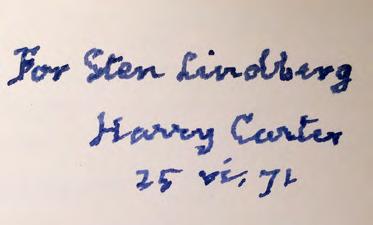 For Sten Lindberg
Harry Carter
25 vi. 71